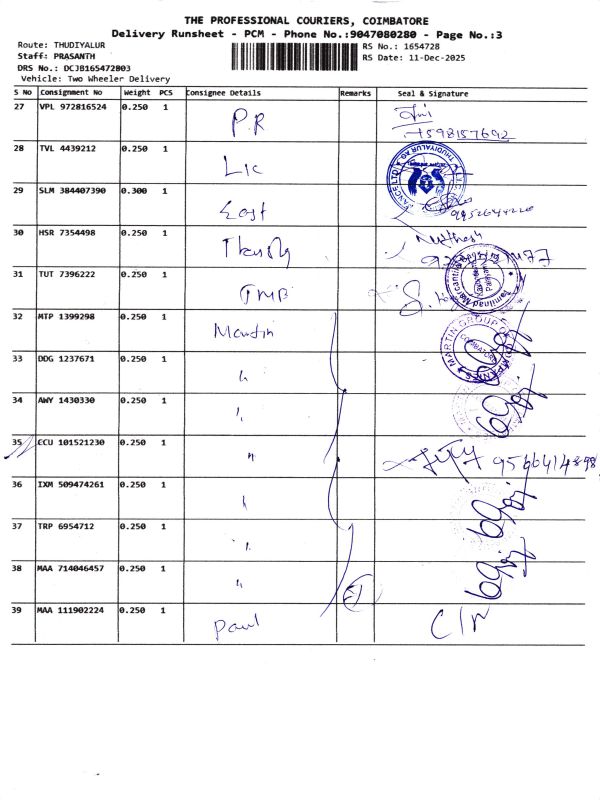 THE PROFESSIONAL COURIERS, COIMBATORE
Delivery Runsheet - PCM - Phone No.:9047080280 - Page No.:3
Route: THUDIYALUR
RS No.: 1654728
Staff: PRASANTH
RS Date: 11-Dec-2025
DRS No.: DCJB165472803
Vehicle: Two Wheeler Delivery
S No Consignment No Weight PCS Consignee Details Remarks Seal & Signature
27 VPL 972816524 0.250 1 P.R
28 TVL 4439212 0.250 1 LIC
29 SLM 384407390 0.300 1 East
30 HSR 7354498 0.250 1
31 TUT 7396222 0.250 1 TMB
32 MTP 1399298 0.250 1 Martin
MARTIN GROUP
COIMBATORE
33 DDG 1237671 0.250 1 "
34 AWY 1430330 0.250 1 "
35 CCU 101521230 0.250 1 "
36 IXM 509474261 0.250 1 "
37 TRP 6954712 0.250 1 "
38 MAA 714046457 0.250 1 "
39 MAA 111902224 0.250 1 Paul